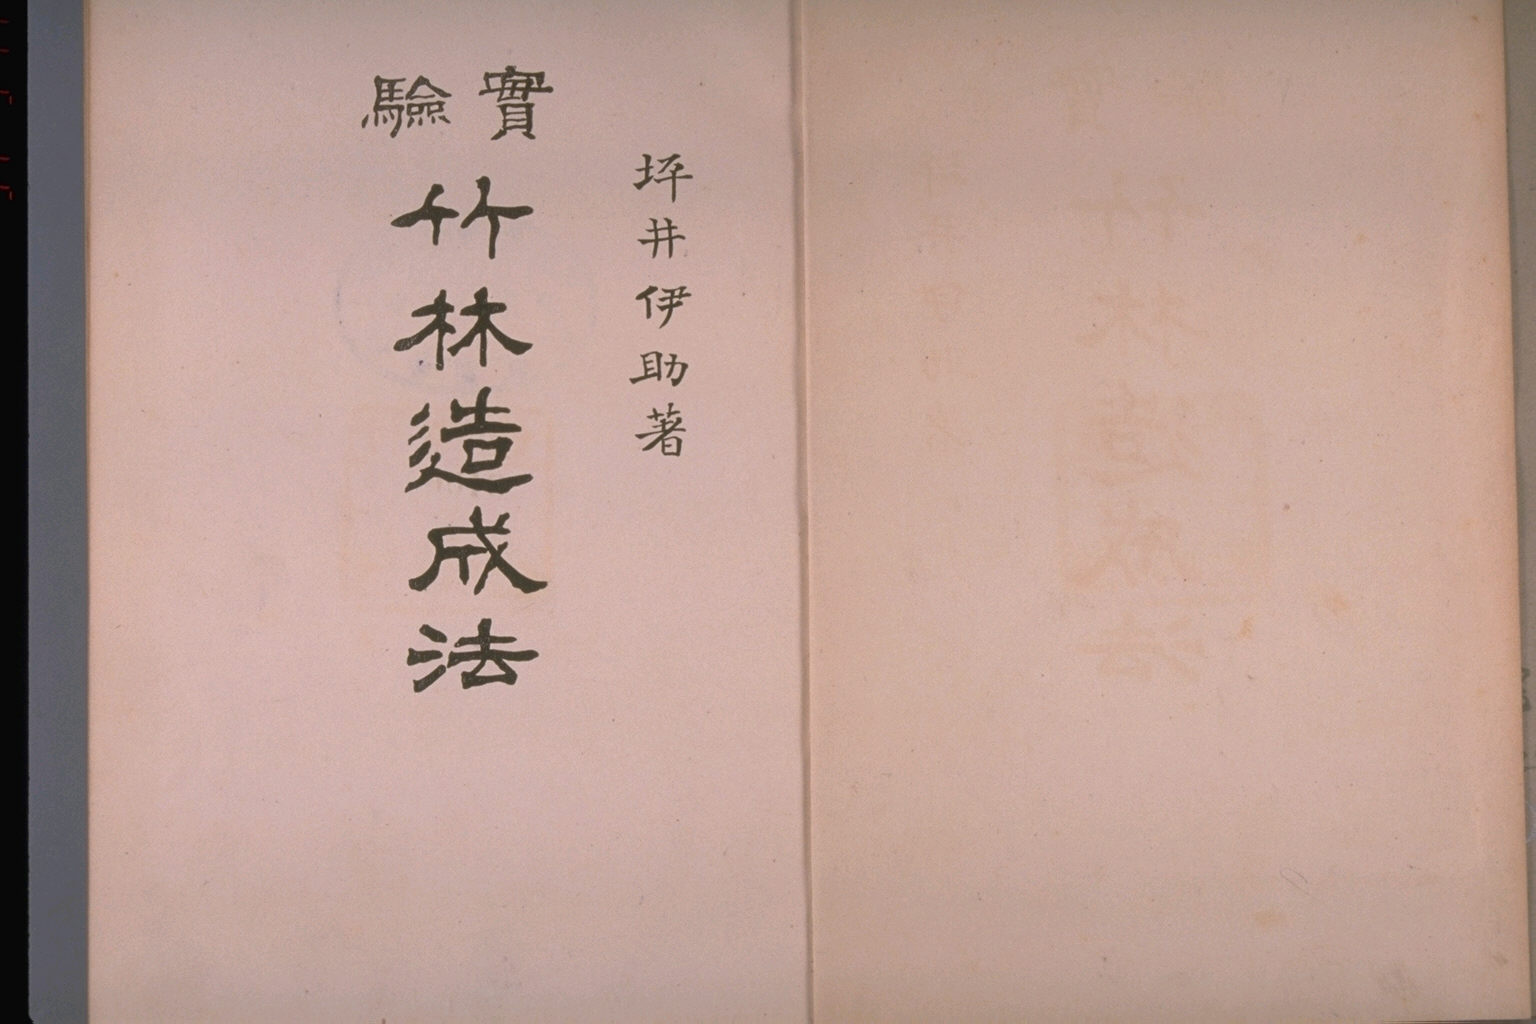 坪井伊助著
實驗 竹林造成法